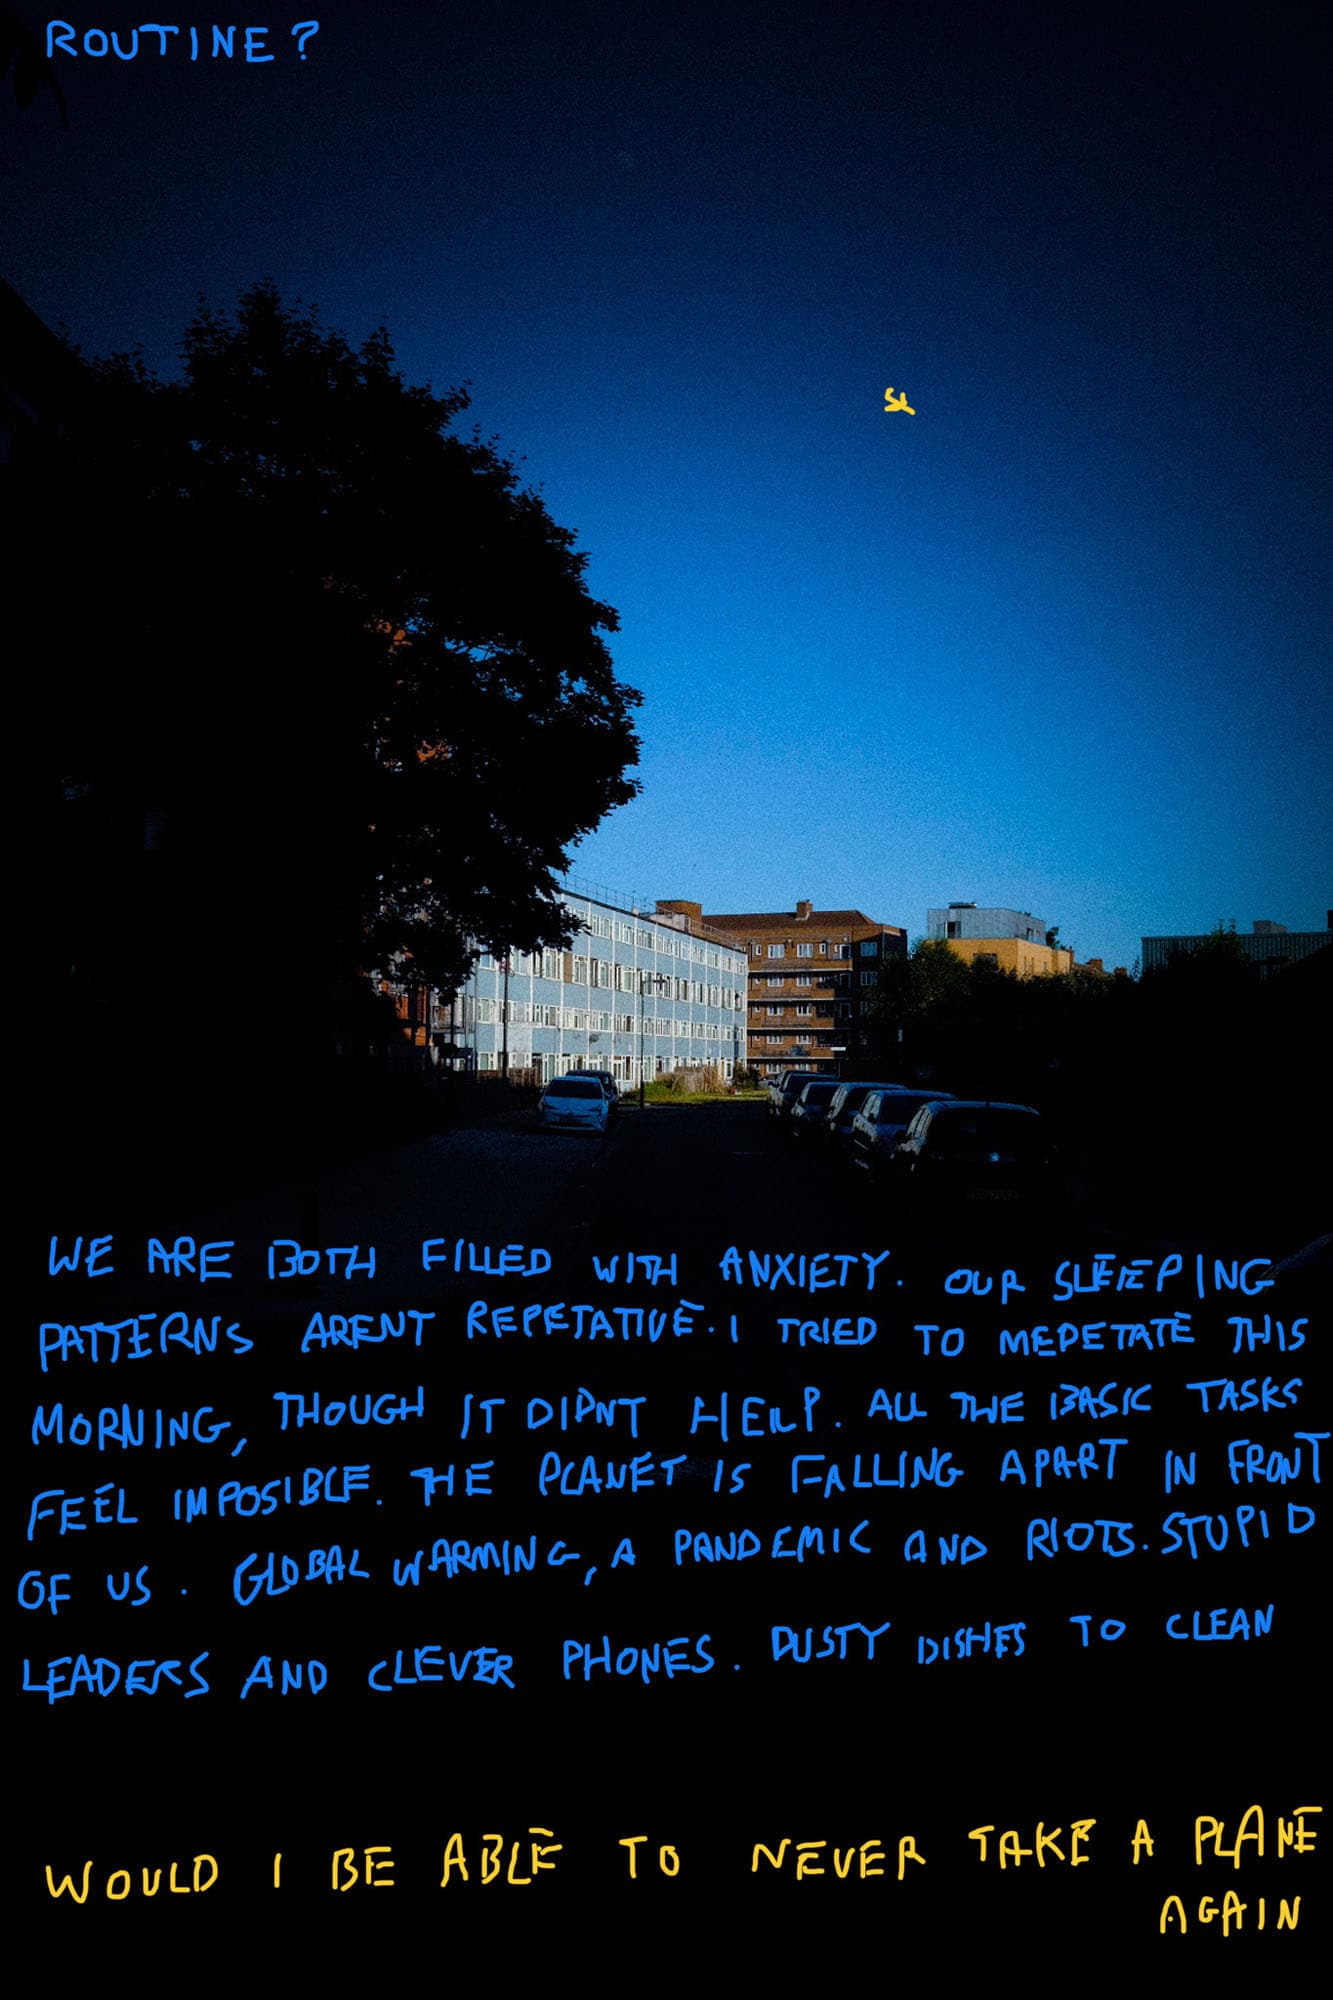 ROUTINE?
WE ARE BOTH FILLED WITH ANXIETY. OUR SLEEPING
PATTERNS ARENT REPETATIVE. I TRIED TO MEDETATE THIS
MORNING, THOUGH IT DIDNT HELP. ALL THE BASIC TASKS
FEEL IMPOSIBLE. THE PLANET IS FALLING APART IN FRONT
OF US. GLOBAL WARMING, A PANDEMIC AND RIOTS. STUPID
LEADERS AND CLEVER PHONES. DUSTY DISHES TO CLEAN
WOULD I BE ABLE TO NEVER TAKE A PLANE
AGAIN